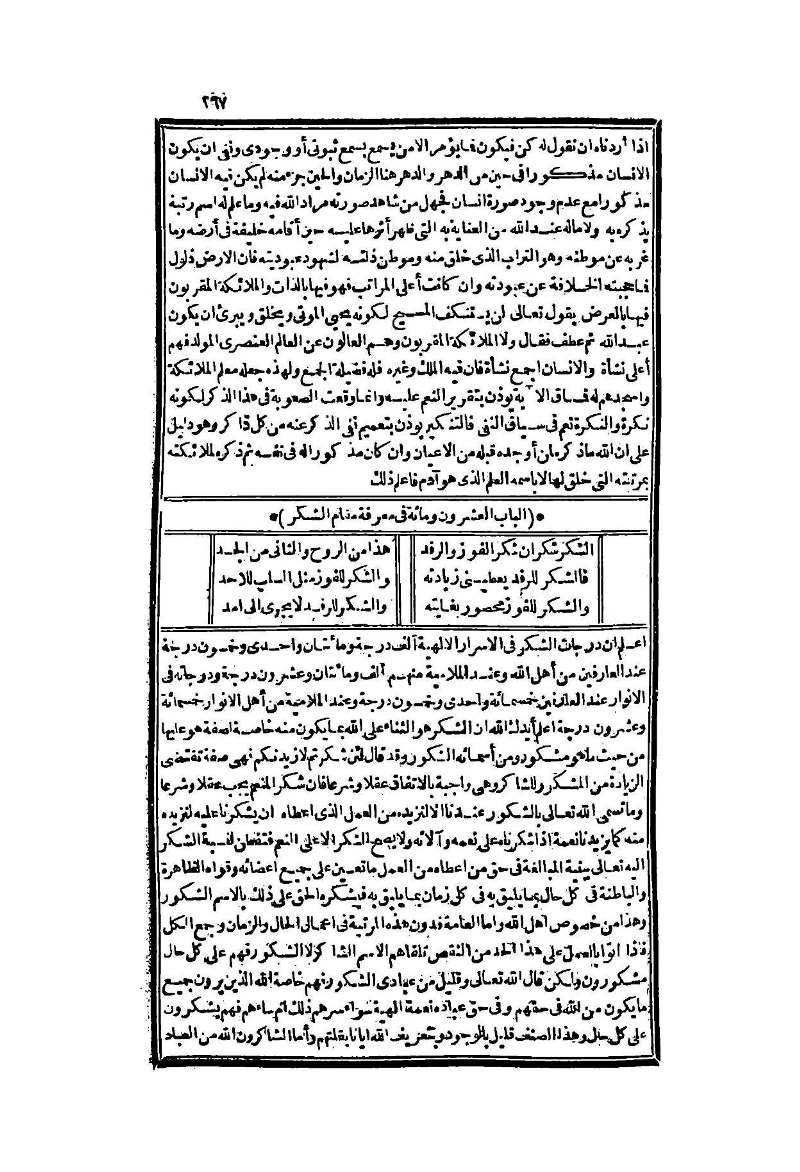 ٢٩٧
اذا أردناه ان نقول له كن فيكون فما يؤمر الا من يسمع بسمع ثبوتى أو وجودى ونفى ان يكون
الانسان مذكورا فى حين من الدهر والدهر هنا الزمان والحين جزء منه لم يكن فيه الانسان
مذكورا مع عدم وجود صورة انسان فجهل من شاهد صورته مراد الله فيه وما علم له اسم رتبة
يذكره به ولا ماله عند الله من العناية به التى ظهر أثرها عليه حين أقامه خليفة فى أرضه وما
غربه عن موطنه وهو التراب الذى خلق منه وموطن ذلته لشهود عبوديته فان الارض ذلول
فما حجبته الخلافة عن عبودته وان كانت أعلى المراتب فهو فيها بالذات والملائكة المقربون
فيها بالعرض يقول تعالى لن يستنكف المسيح لكونه يحيى الموتى ويخلق ويبرئ ان يكون
عبد الله ثم عطف فقال ولا الملائكة المقربون وهم العالون عن العالم العنصرى المولد فهم
أعلى نشأة والانسان اجمع نشأة فان فيه الملك وغيره فله فضيلة الجمع ولهذا جعله معلم الملائكة
واسجدهم له فساق الآية يؤذن بتقرير النعم عليه وانما وقعت الصعوبة فى هذا الذكر لكونه
نكرة والنكرة تعم فى سياق النفى فالتنكير يؤذن بتعميم نفى الذكر عنه من كل ذاكر وهو دليل
على ان الله ما ذكره لمن أوجده قبله من الاعيان وان كان مذكورا له فى نفسه ثم ذكره لملائكته
بمرتبته التى خلق لها لا باسمه العلم الذى هو آدم فاعلم ذلك
*(الباب العشرون ومائة فى معرفة مقام الشكر)*
الشكر شكران شكر الفوز والرفد هذا من الروح والثانى من الجسد
فالشكر للرفد يعطينى زيادته والشكر للفوز مثل السلب للاحد
والشكر للفوز محصور بغايته والشكر للرفد لا يجرى الى امد
اعلم ان درجات الشكر فى الاسرار الالهية ألف درجة ومائتان واحدى وخمسون درجة
عند العارفين من أهل الله وعند الملامية منهم ألف ومائتان وعشرون درجة ودرجاته فى
الانوار عند العارفين خمسمائة واحدى وخمسون درجة وعند الملامية من أهل الانوار خمسمائة
وعشرون درجة اعلم أيدك الله ان الشكر هو الثناء على الله بما يكون منه خاصة لصفة هو عليها
من حيث ما هو مشكور ومن أسمائه الشكور وقد قال لئن شكرتم لازيدنكم فهى صفة تقتضى
الزيادة من المشكور للشاكر وهى واجبة بالاتفاق عقلا وشرعا فان شكر المنعم يجب عقلا وشرعا
وما تسمى الله تعالى بالشكور عندنا الا لنزيده من العمل الذى اعطاه ان يشكرنا عليه لنزيده
منه كما يزيدنا نعمة اذا شكرناه على نعمه وآلائه ولا يصح الشكر الا على النعم فتفطن لنسبة الشكر
اليه تعالى ببنية المبالغة فى حق من اعطاه من العمل ما تعين على جميع اعضائه وقواه الظاهرة
والباطنة فى كل حال بما يليق به فى كل زمان بما يليق به فيشكره الحق على ذلك بالاسم الشكور
وهذا من خصوص أهل الله واما العامة فدون هذه المرتبة فى اعمالى الحال والزمان وجمع الكل
فاذا اتوا بالعمل على هذا الحد من النقص تلقاهم الاسم الشاكر لا الشكور فهم على كل حال
مشكورون ولكن قال الله تعالى وقليل من عبادى الشكور فهم خاصة الله الذين يرون جميع
ما يكون من الله فى حقهم وفى حق عباده نعمة الهية سواء سرهم ذلك ام ساءهم فهم يشكرون
على كل حال وهذا الصنف قليل بالوجود وبتعريف الله ايانا بقلتهم وأما الشاكرون الله من العباد